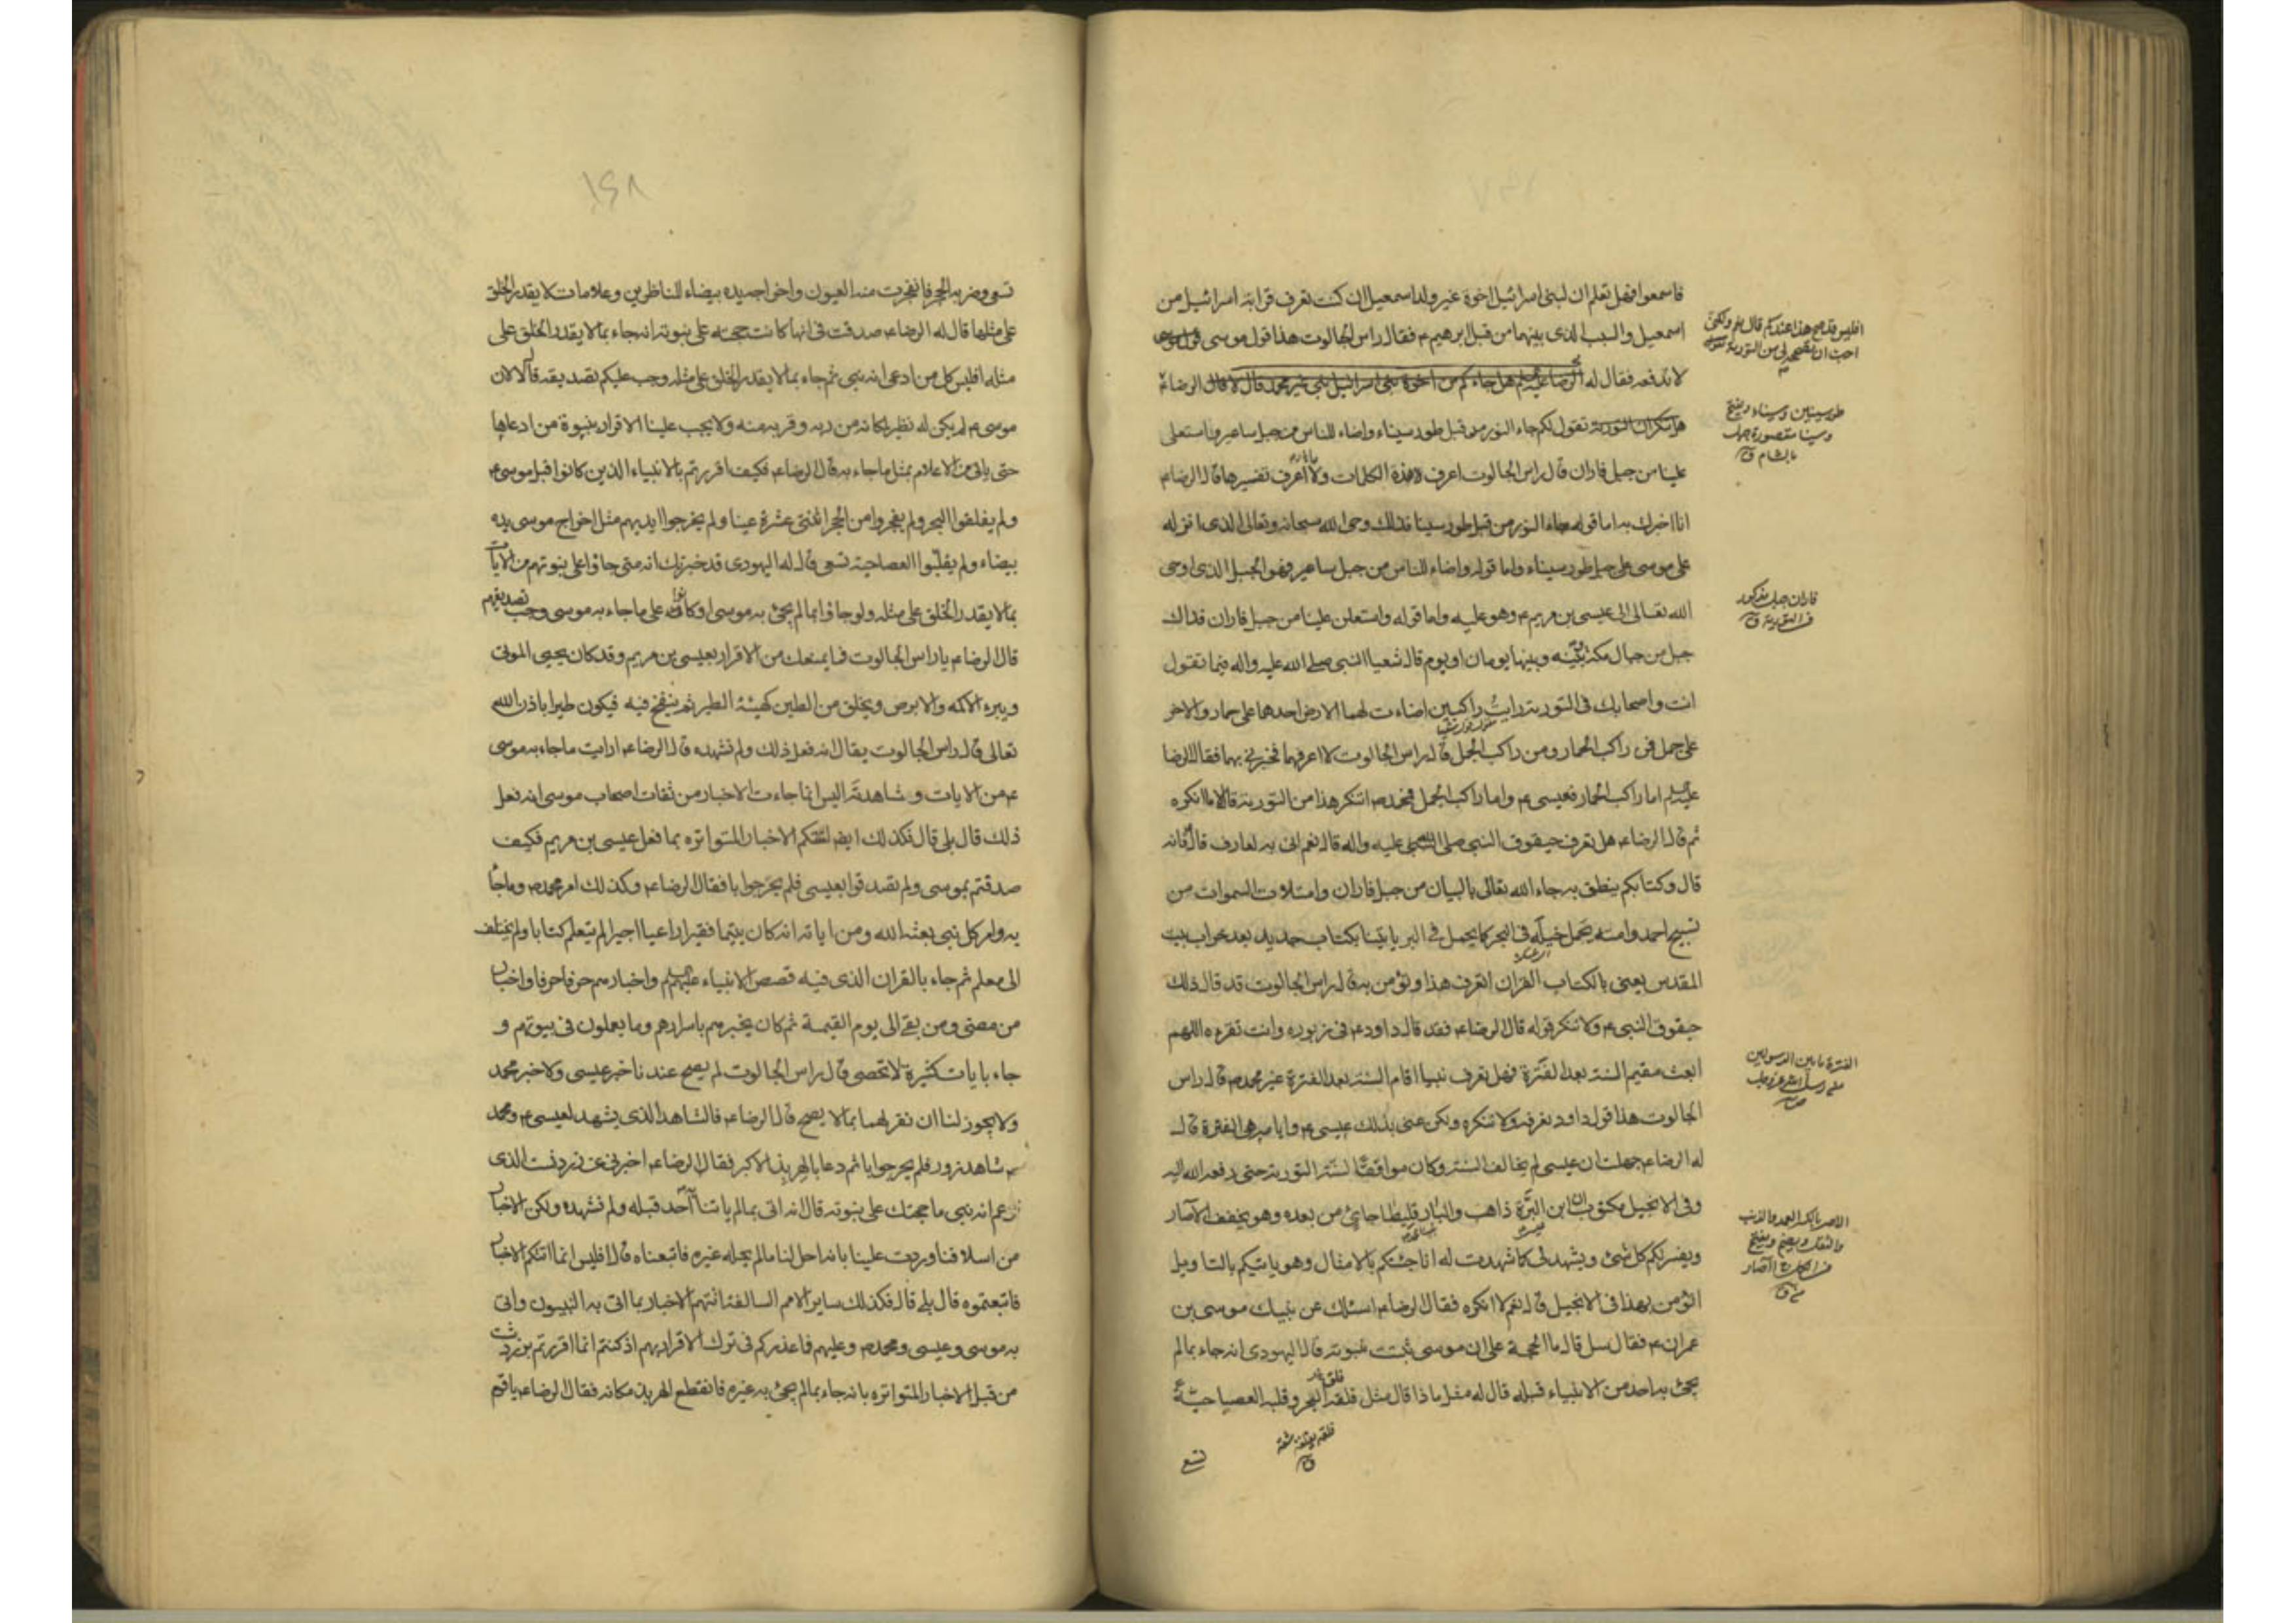 فاسمعوا فهل تعلم ان لبنى اسرائيل اخوة غير ولد اسمعيل ان كنت تعرف قرابة اسرائيل من
اسمعيل والسبب الذى بينهما من قبل ابرهيم ع فقال راس الجالوت هذا قول موسى
لا ندفعه فقال له الرضا عليه السلم هل جاءكم من اخوة بنى اسرائيل نبى غير محمد قال لا قال الرضا ع
افليس قد صح هذا عندكم قال نعم ولكنى
احب ان تصححه لى من التورية
هل تنكر ان التورية تقول لكم جاء النور من قبل طور سيناء واضاء للناس من جبل ساعير واستعلى
طور سينين وسيناء ويفتح
وسينا مقصورة جبل
بالشام ق
علينا من جبل فاران قال راس الجالوت اعرف هذه الكلمات ولا اعرف تفسيرها قال الرضا ع
انا اخبرك به اما قوله جاء النور من قبل طور سينا فذلك وحى الله سبحانه وتعالى الذى انزله
على موسى على جبل طور سيناء واما قوله واضاء للناس من جبل ساعير فهو الجبل الذى اوحى
الله تعالى الى عيسى بن مريم ع وهو عليه واما قوله واستعلن علينا من جبل فاران فذاك
فاران جبل مذكور
فى التورية ق
جبل من جبال مكة بينه وبينها يومان او يوم قال شعيا النبى صلى الله عليه واله فيما تقول
انت واصحابك فى التورية رايت راكبين اضاءت لهما الارض احدهما على حمار والاخر
على جمل فمن راكب الحمار ومن راكب الجمل قال راس الجالوت لا اعرفهما فخبرنى بهما فقال الرضا
عليه السلم اما راكب الحمار فعيسى ع واما راكب الجمل فمحمد ص اتنكر هذا من التورية قال لا ما انكره
ثم قال الرضا ع هل تعرف حيقوق النبى صلى الله عليه واله قال نعم انى به لعارف قال فانه
قال وكتابكم ينطق به جاء الله تعالى بالبيان من جبل فاران وامتلات السموات من
تسبيح احمد وامته تحمل خيله فى البحر كما يحمل فى البر ياتينا بكتاب جديد بعد خراب بيت
المقدس يعنى بالكتاب القران اتعرف هذا وتؤمن به قال راس الجالوت قد قال ذلك
حيقوق النبى ع ولا ننكر قوله قال الرضا ع فقد قال داود ع فى زبوره وانت تقرءه اللهم
ابعث مقيم السنة بعد الفترة فهل تعرف نبيا اقام السنة بعد الفترة غير محمد ص قال راس
الفترة ما بين الرسولين
من رسل الله عز وجل
ص
الجالوت هذا قول داود نعرفه ولا ننكره ولكن عنى بذلك عيسى ع وايامه هى الفترة قال
له الرضا ع جهلت ان عيسى لم يخالف السنة وكان موافقا لسنة التورية حتى رفعه الله اليه
وفى الانجيل مكتوب ان ابن البرة ذاهب والبارقليطا جائى من بعده وهو يخفف الآصار
الاصر بالكسر العهد والذنب
والثقل ويضم ويفتح
فى الكل ج آصار
ق
ويفسر لكم كل شئ ويشهد لى كما شهدت له انا جئتكم بالامثال وهو ياتيكم بالتاويل
اتؤمن بهذا فى الانجيل قال نعم لا انكره فقال الرضا ع اسئلك عن نبيك موسى بن
عمران ع فقال سل قال ما الحجة على ان موسى ثبتت نبوته قال اليهودى انه جاء بما لم
يجئ به احد من الانبياء قبله قال له مثل ماذا قال مثل فلقه البحر وقلبه العصا حية
فلقه يفلقه شقه
ق
تسع
۱۶۸
تسعى وضربه الحجر فانفجرت منه العيون واخراجه يده بيضاء للناظرين وعلامات لا يقدر الخلق
على مثلها قال له الرضا ع صدقت فى انها كانت حجته على نبوته انه جاء بما لا يقدر الخلق على
مثله افليس كل من ادعى انه نبى ثم جاء بما لا يقدر الخلق على مثله وجب عليكم تصديقه قال لا لان
موسى ع لم يكن له نظير لمكانه من ربه وقربه منه ولا يجب علينا الاقرار بنبوة من ادعاها
حتى ياتى من الاعلام بمثل ما جاء به قال الرضا ع فكيف اقررتم بالانبياء الذين كانوا قبل موسى ع
ولم يفلقوا البحر ولم يفجروا من الحجر اثنتى عشرة عينا ولم يخرجوا ايديهم مثل اخراج موسى يده
بيضاء ولم يقلبوا العصا حية تسعى قال له اليهودى قد خبرتك انه متى جاؤا على نبوتهم من الآيات
بما لا يقدر الخلق على مثله ولو جاؤا بما لم يجئ به موسى او كانوا على ما جاء به موسى وجب تصديقهم
قال الرضا ع يا راس الجالوت فما يمنعك من الاقرار بعيسى بن مريم وقد كان يحيى الموتى
ويبره الاكمه والابرص ويخلق من الطين كهيئة الطير ثم ينفخ فيه فيكون طيرا باذن الله
تعالى قال راس الجالوت يقال انه فعل ذلك ولم نشهده قال الرضا ع ارايت ما جاء به موسى
ع من الايات وشاهدته اليس انما جاءت الاخبار من ثقات اصحاب موسى انه فعل
ذلك قال بلى قال فكذلك ايضا اتتكم الاخبار المتواتره بما فعل عيسى بن مريم فكيف
صدقتم بموسى ولم تصدقوا بعيسى فلم يحر جوابا فقال الرضا ع وكذلك امر محمد ص وما جاء
به وامر كل نبى بعثه الله ومن اياته انه كان يتيما فقيرا راعيا اجيرا لم يتعلم كتابا ولم يختلف
الى معلم ثم جاء بالقران الذى فيه قصص الانبياء عليهم السلم واخبارهم حرفا حرفا واخبار
من مضى ومن بقى الى يوم القيمة ثم كان يخبرهم باسرارهم وما يعملون فى بيوتهم و
جاء بايات كثيرة لا تحصى قال راس الجالوت لم يصح عندنا خبر عيسى ولا خبر محمد
ولا يجوز لنا ان نقر لهما بما لا يصح قال الرضا ع فالشاهد الذى يشهد لعيسى ع ومحمد
ص شاهد زور فلم يحر جوابا ثم دعا بالهربذ الاكبر فقال الرضا ع اخبرنى عن زردشت الذى
زعم انه نبى ما حجتك على نبوته قال انه اتى بما لم ياتنا احد قبله ولم نشهده ولكن الاخبار
من اسلافنا وردت علينا بانه احل لنا ما لم يحله غيره فاتبعناه قال افليس انما اتتكم الاخبار
فاتبعتموه قال بلى قال فكذلك ساير الامم السالفة اتتهم الاخبار بما اتى به النبيون واتى
به موسى وعيسى ومحمد ص وعليهم فما عذركم فى ترك الاقرار بهم اذ كنتم انما اقررتم بزردشت
من قبل الاخبار المتواتره بانه جاء بما لم يجئ به غيره فانقطع الهربذ مكانه فقال الرضا ع يا قوم